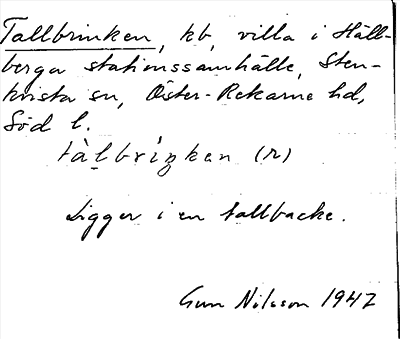 Tallbrinken, kb, villa i Häll-
berga stationssamhälle, Sten-
kvista sn, Öster-Rekarne hd,
Söd l.
tàlbríŋken (r)
Ligger i en tallbacke.
Gun Nilsson 1947